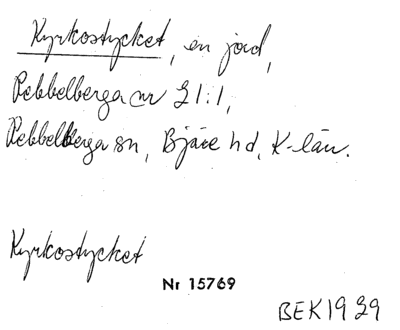 Kyrkostycket, en jord,
Rebbelberga nr 21:1,
Rebbelberga sn, Bjäre hd, K-län.
Kyrkostycket
Nr 15769
BEK 1929